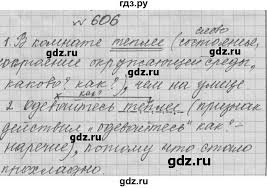 № 606
слово
1. В комнате теплее (состоянье,
состояние окружающей среды,
каково? как?), чем на улице.
как?
2. Одевайтесь теплее (признак
действия „одевайтесь" как? –
наречие), потому что стало
прохладно.
gdz.ru
gdz.ru
gdz.ru
gdz.ru
gdz.ru
gdz.ru